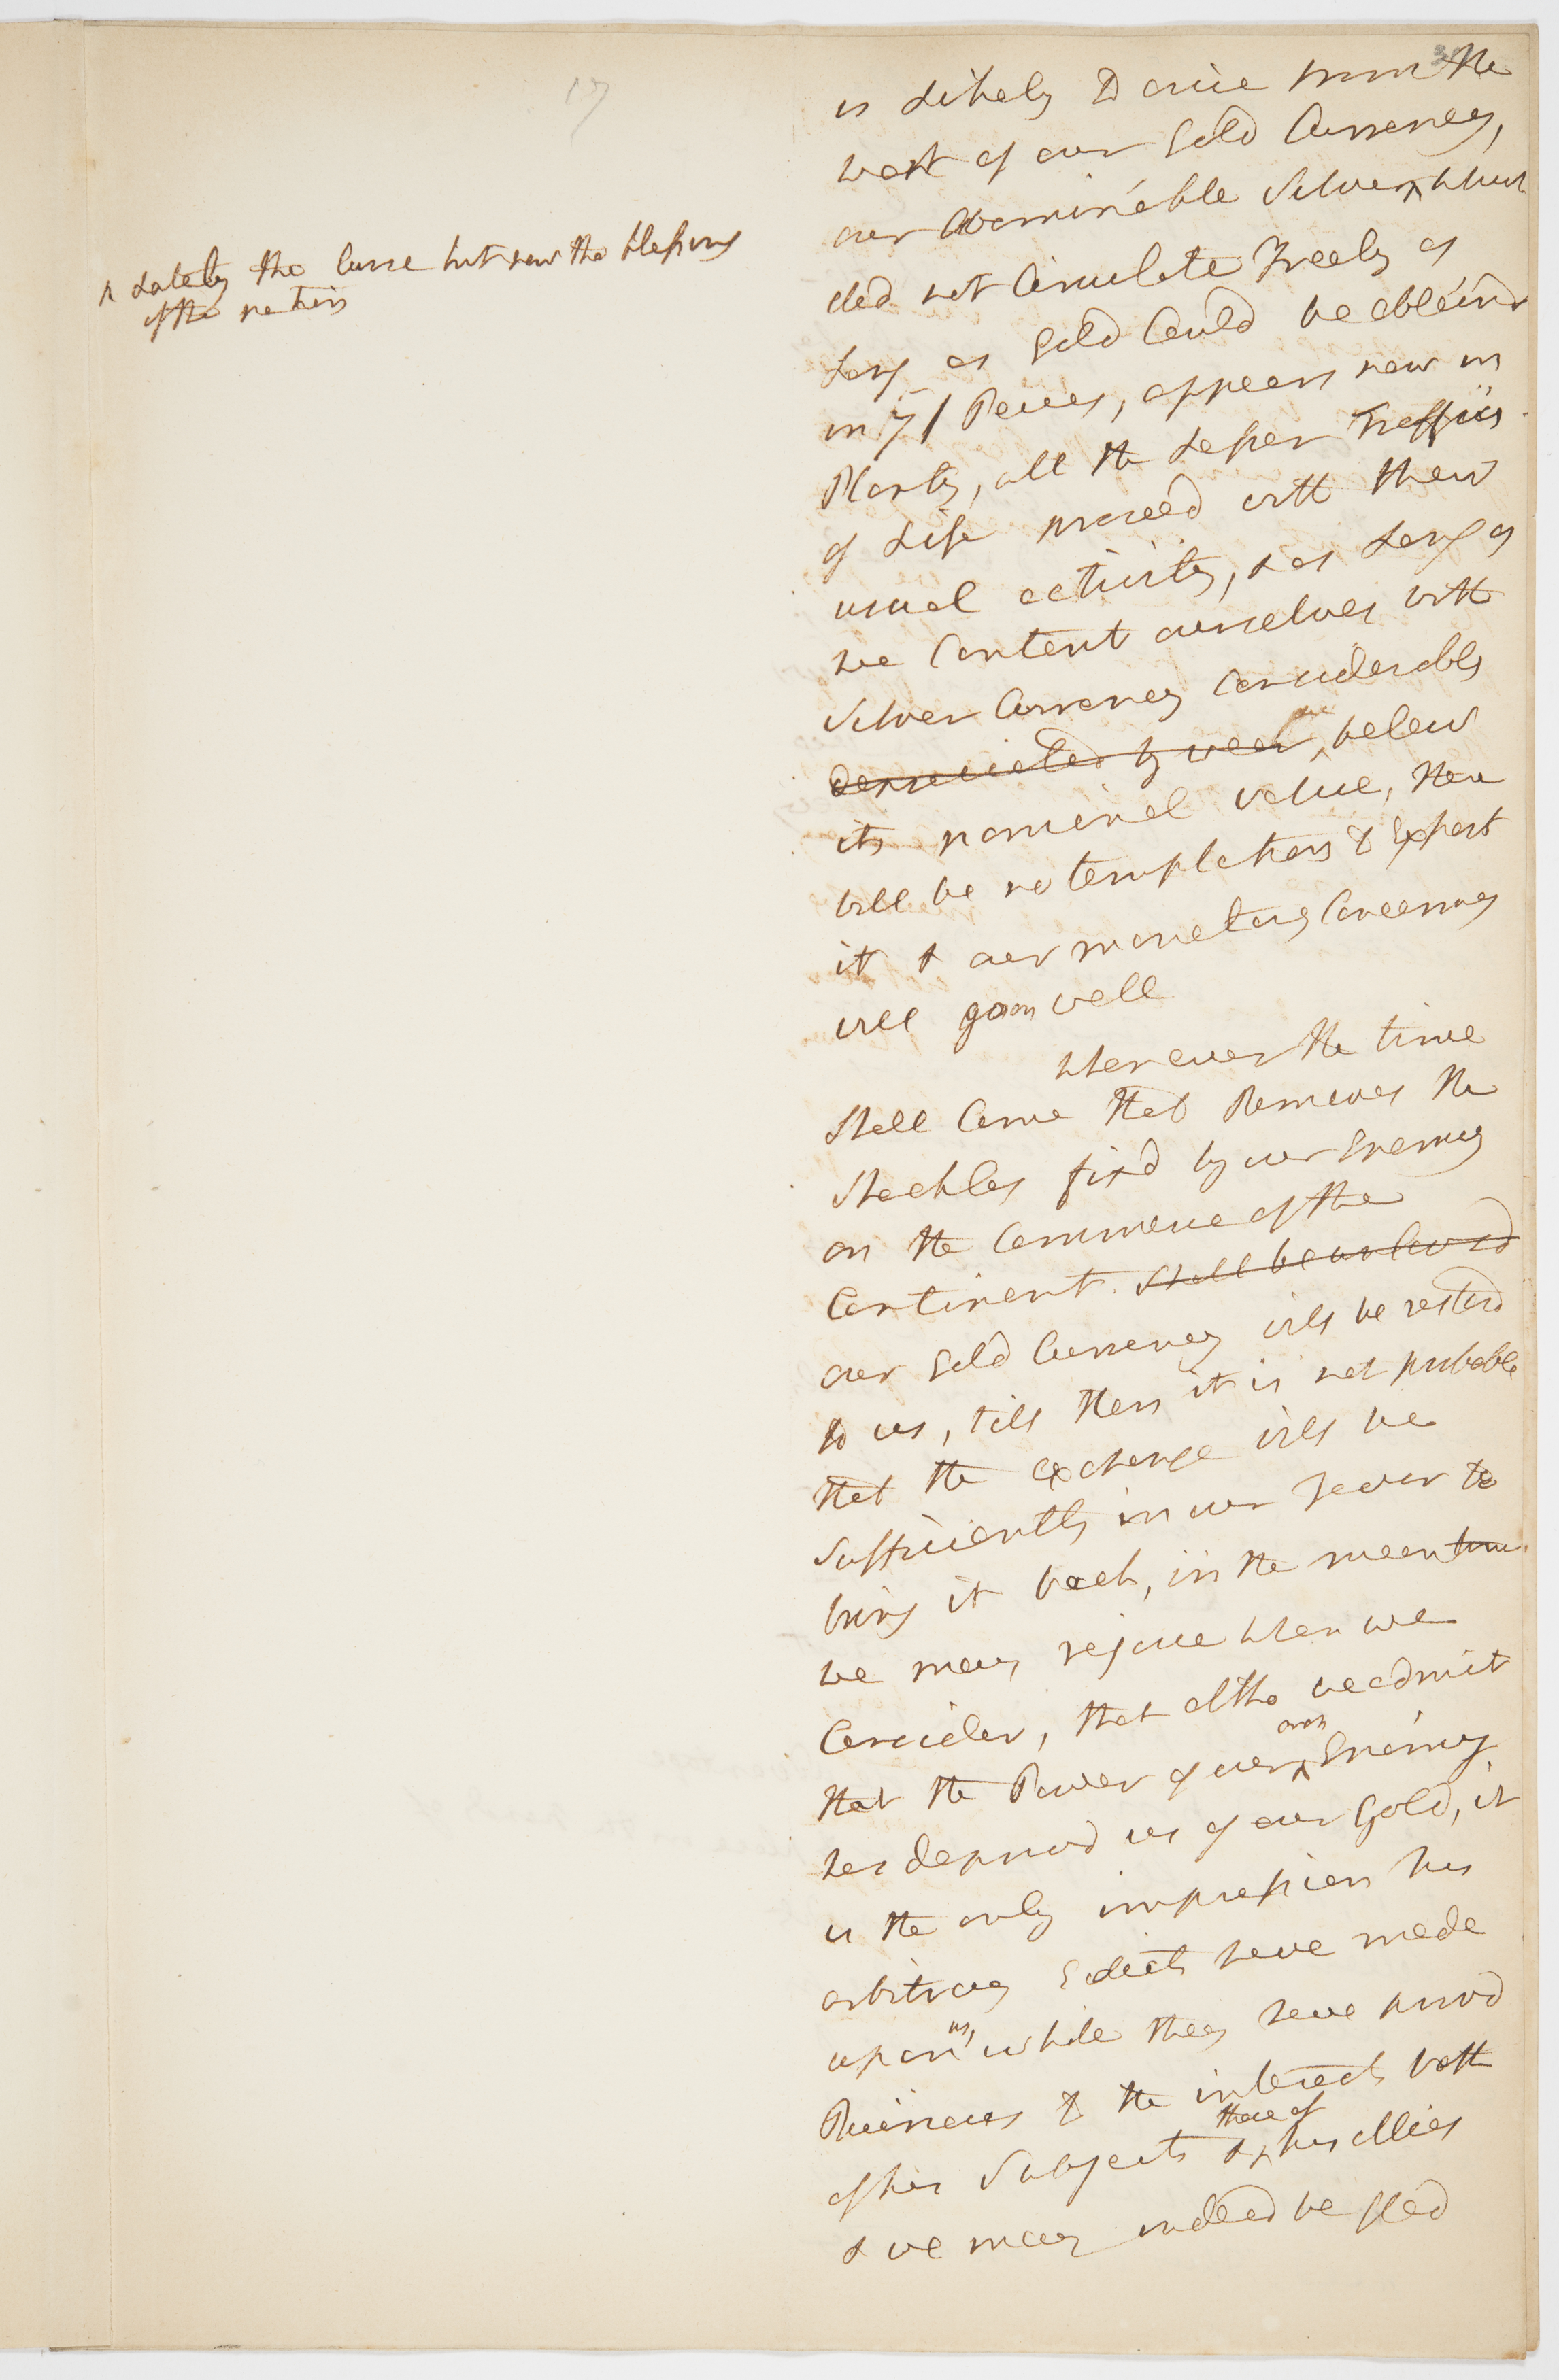 17
is Likely to arise from the
want of our Gold Currency,
our abominable Silver ^ which
^ Lately the Curse but now the blessing
of the nation
did not Circulate Freely as
Long as Gold Could be obtaind
in 7/ Peices, appears now in
Plenty, all the Lesser Traffics
of Life proceed with their
usual activity, & as Long as
we Content ourselves with
Silver Currency Considerably
depreciated by wear, below
its nominal value, there
will be no temptation to Export
it & our monetary Concerns
will go on well
whenever the time
Shall Come that Removes the
Shackles fixd by our Enemy
on the Commerce of the
Continent Shall be
our Gold Currency will be restord
to us, till then it is not probable
that the exchange will be
Sufficiently in our Favor to
bring it back, in the mean time
we may rejoice when we
Consider, that altho we admit
that the Power of our ^ Enemy
has deprivd us of our Gold, it
is the only impression his
arbitrary Edicts have made
upon us, while they have provd
Ruinous to the interests both
of his Subjects & ^ those of his allies
& we may indeed be glad